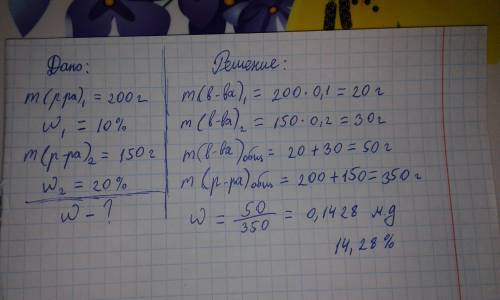 Дано:
m(р-ра)₁ = 200 г
w₁ = 10%
m(р-ра)₂ = 150 г
w₂ = 20%
w - ?
Решение:
m(в-ва)₁ = 200 · 0,1 = 20 г
m(в-ва)₂ = 150 · 0,2 = 30 г
m(в-ва)общ = 20 + 30 = 50 г
m(р-ра)общ = 200 + 150 = 350 г
w = 50/350 = 0,1428 м.д
14,28%